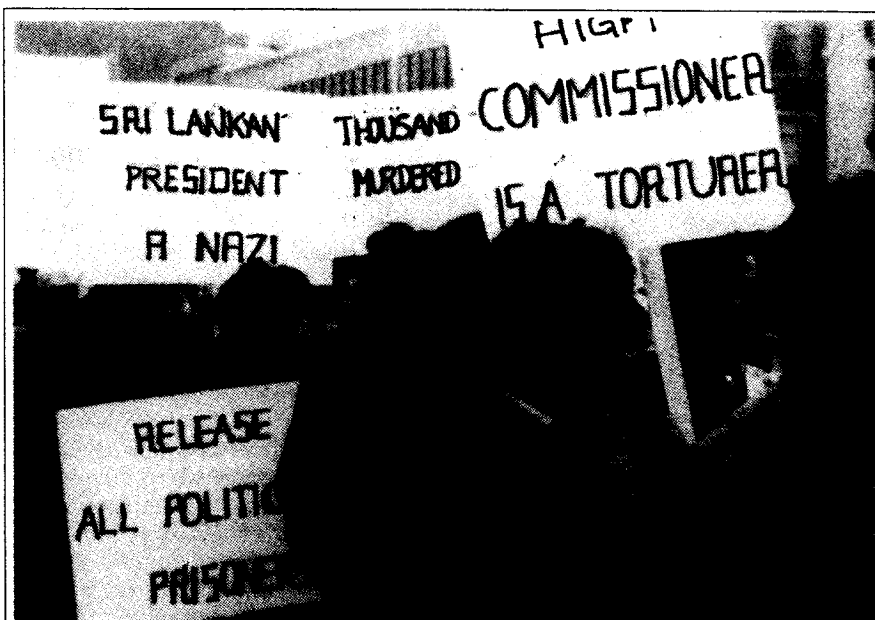 SRI LANKAN
PRESIDENT
A NAZI
THOUSAND
MURDERED
HIGH
COMMISSIONER
IS A TORTURER
RELEASE
ALL POLITIC
PRISONER